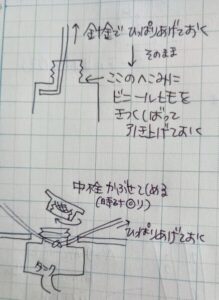 針金で ひっぱりあげておく
そのまま
ここのへこみに
ビニールヒモを
きつくしばって
引き上げておく
中栓 かぶせてしめる
(時計回り)
ひっぱりあげておく
タンク